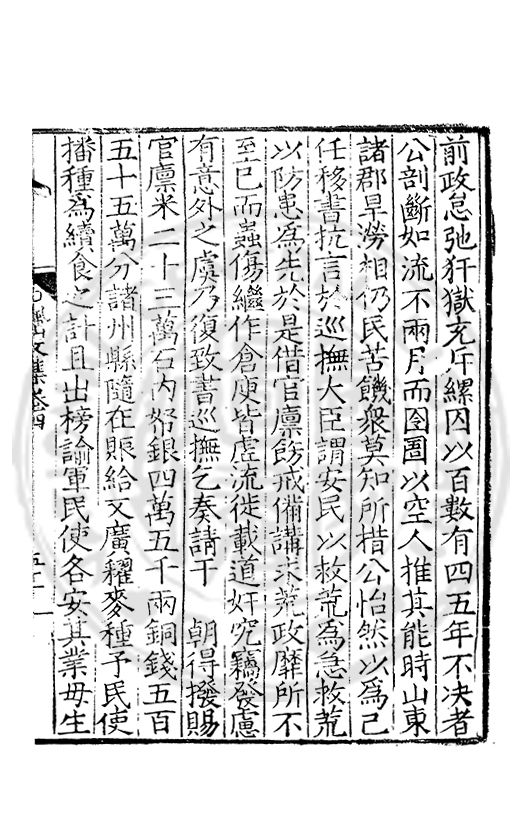 前政怠弛犴獄充斥縲囚以百數有四五年不决者
公剖斷如流不兩月而囹圄以空人推其能時山東
諸郡旱澇相仍民苦饑衆莫知所措公怡然以爲己
任移書抗言於巡撫大臣謂安民以救荒爲急救荒
以防患爲先於是借官廪飭戒備講求荒政靡所不
至已而蟲傷繼作倉庾皆虚流徙載道奸宄竊發慮
有意外之虞乃復致書巡撫乞奏請于 朝得撥賜
官廪米二十三萬石内帑銀四萬五千兩銅錢五百
五十五萬分諸州縣隨在賑給又廣糴麥種予民使
播種爲續食之計且出榜諭軍民使各安其業毋生
文集卷四